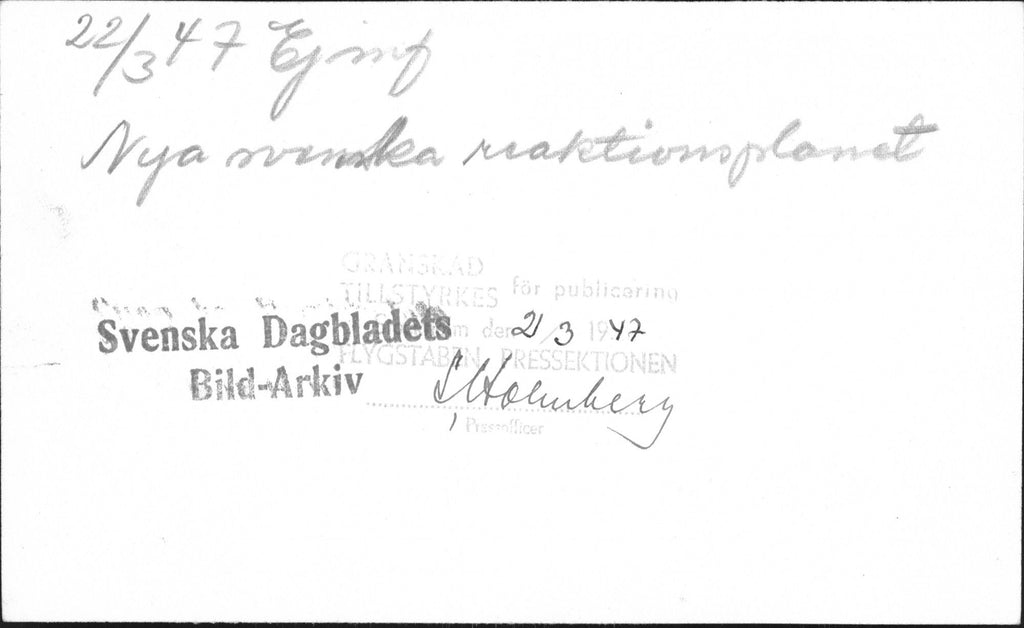 22/3 47 Ej inf
Nya svenska reaktionsplanet
GRANSKAD
TILLSTYRKES för publicering
den 21/3 1947
FLYGSTABEN PRESSEKTIONEN
Holmberg
Pressofficer
Svenska Dagbladets
Bild-Arkiv